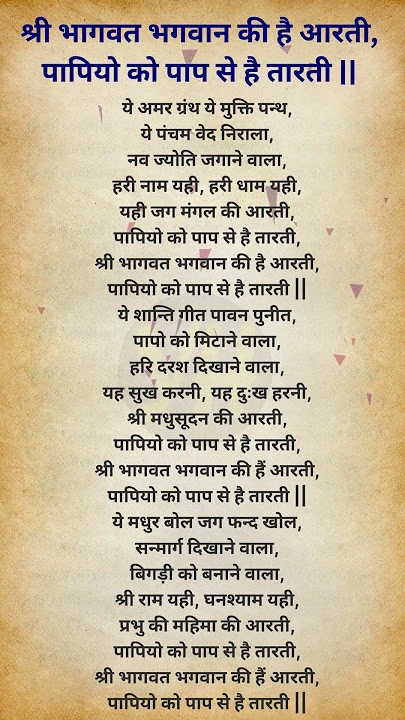 श्री भागवत भगवान की है आरती,
पापियो को पाप से है तारती ||
ये अमर ग्रंथ ये मुक्ति पन्थ,
ये पंचम वेद निराला,
नव ज्योति जगाने वाला,
हरी नाम यही, हरी धाम यही,
यही जग मंगल की आरती,
पापियो को पाप से है तारती,
श्री भागवत भगवान की है आरती,
पापियो को पाप से है तारती ||
ये शान्ति गीत पावन पुनीत,
पापो को मिटाने वाला,
हरि दरश दिखाने वाला,
यह सुख करनी, यह दुःख हरनी,
श्री मधुसूदन की आरती,
पापियो को पाप से है तारती,
श्री भागवत भगवान की हैं आरती,
पापियो को पाप से है तारती ||
ये मधुर बोल जग फन्द खोल,
सन्मार्ग दिखाने वाला,
बिगड़ी को बनाने वाला,
श्री राम यही, घनश्याम यही,
प्रभु की महिमा की आरती,
पापियो को पाप से है तारती,
श्री भागवत भगवान की हैं आरती,
पापियो को पाप से है तारती ||